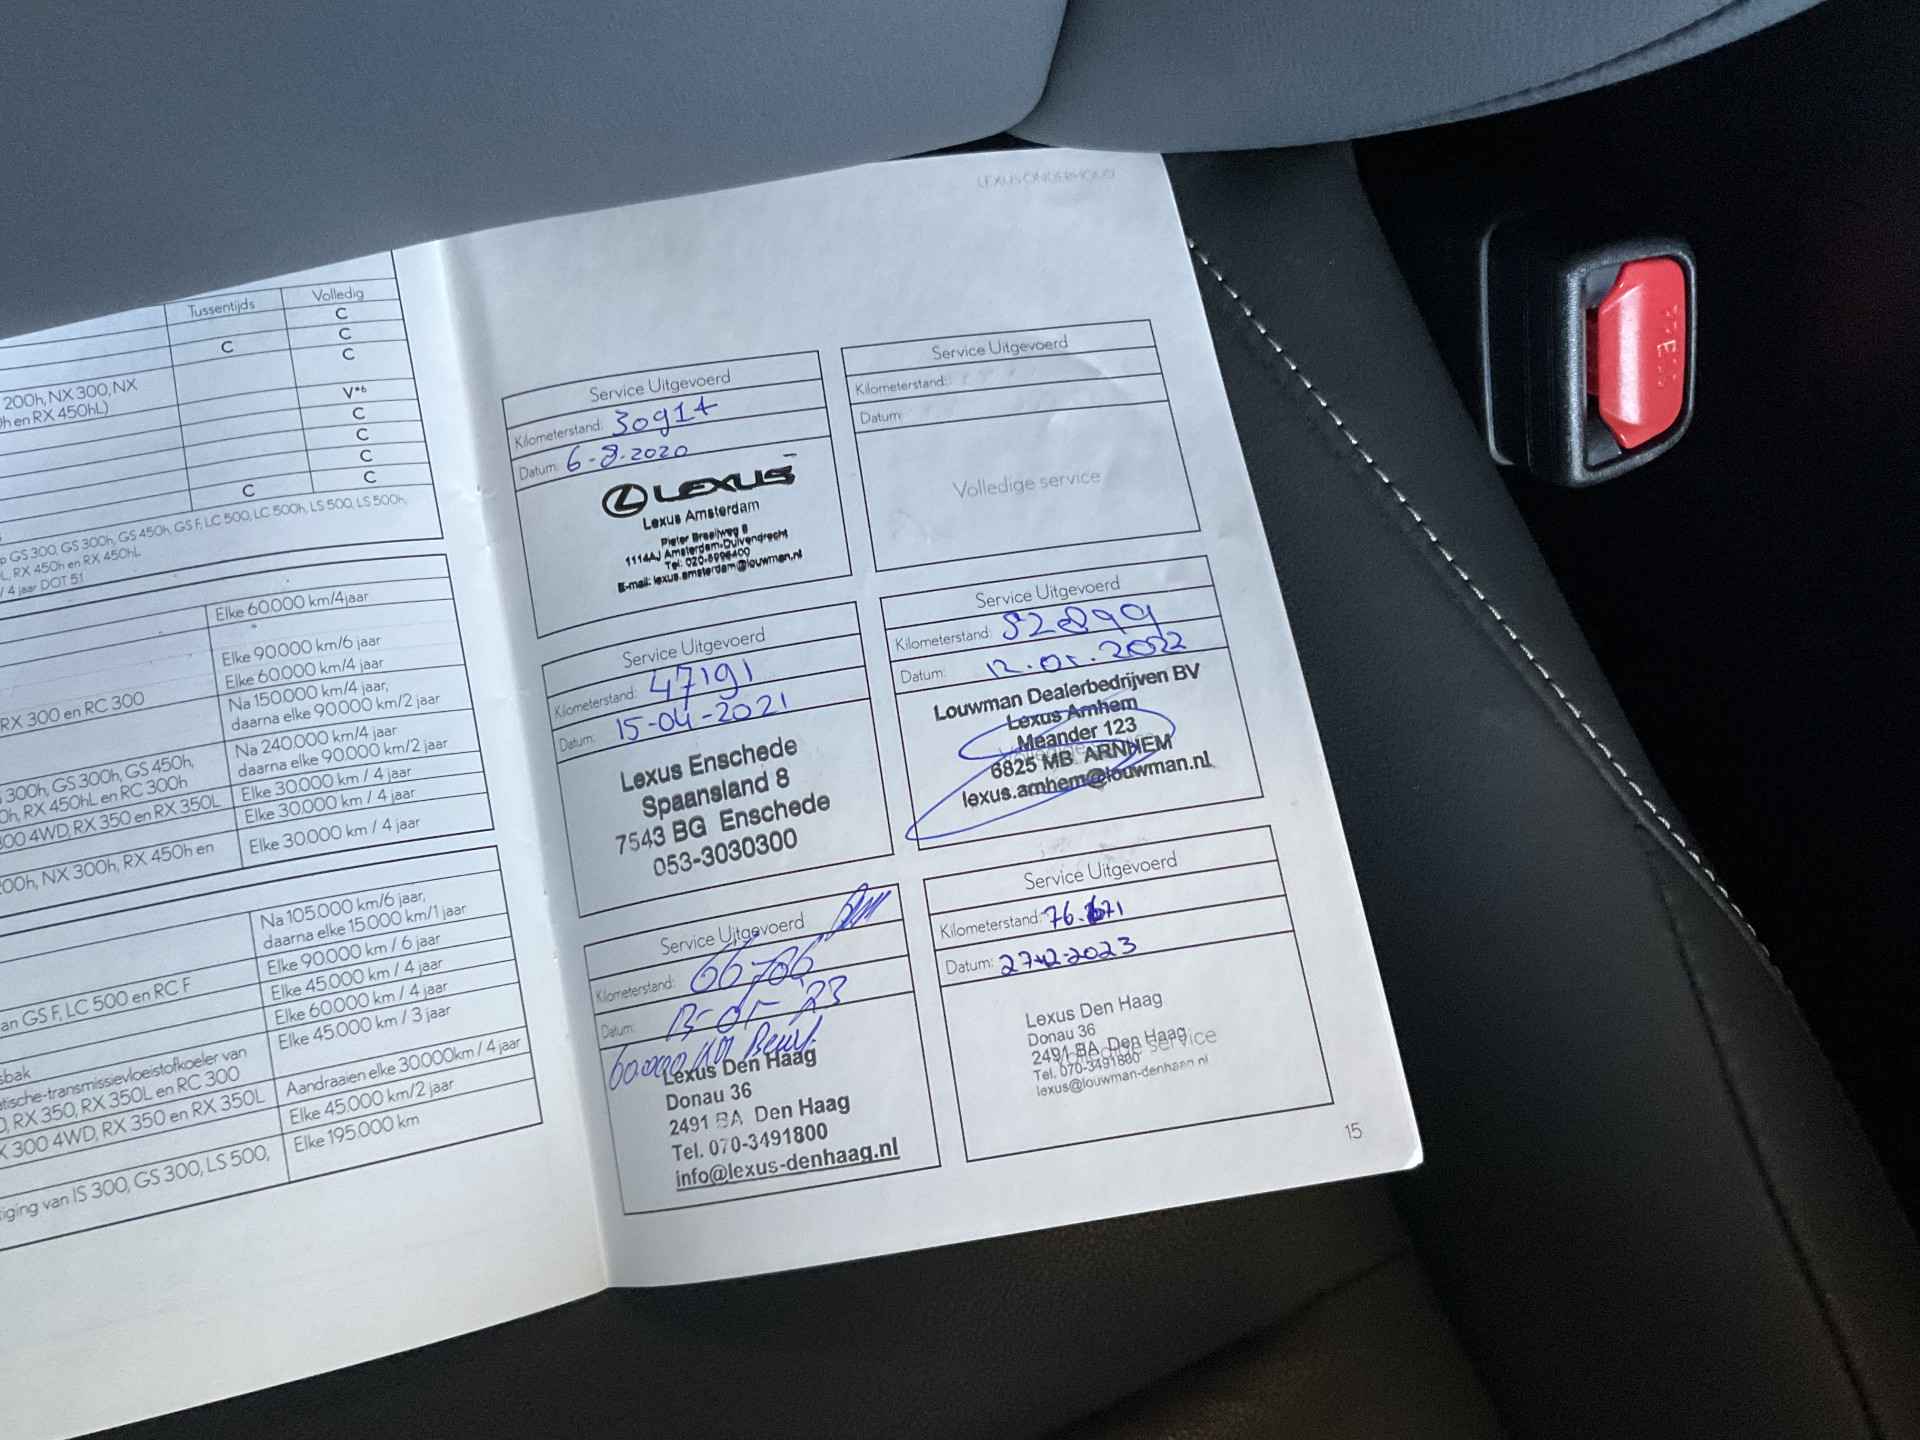 LEXUS ONDERHOUD
Tussentijds
Volledig
C
C
C
200h, NX 300, NX
0h en RX 450hL)
C
V*6
C
C
C
C
C
p GS 300, GS 300h, GS 450h, GS F, LC 500, LC 500h, LS 500, LS 500h,
L, RX 450h en RX 450hL
/ 4 jaar DOT 51
Elke 60.000 km/4jaar
Elke 90.000 km/6 jaar
Elke 60.000 km/4 jaar
RX 300 en RC 300
Na 150.000 km/4 jaar,
daarna elke 90.000 km/2 jaar
300h, GS 300h, GS 450h,
0h, RX 450hL en RC 300h
Na 240.000 km/4 jaar
daarna elke 90.000 km/2 jaar
300 4WD, RX 350 en RX 350L
Elke 30.000 km / 4 jaar
Elke 30.000 km / 4 jaar
200h, NX 300h, RX 450h en
Elke 30.000 km / 4 jaar
Na 105.000 km/6 jaar,
daarna elke 15.000 km/1 jaar
an GS F, LC 500 en RC F
Elke 90.000 km / 6 jaar
Elke 45.000 km / 4 jaar
Elke 60.000 km / 4 jaar
sbak
atische-transmissievloeistofkoeler van
0, RX 350, RX 350L en RC 300
Elke 45.000 km / 3 jaar
X 300 4WD, RX 350 en RX 350L
Aandraaien elke 30.000km / 4 jaar
Elke 45.000 km/2 jaar
tiging van IS 300, GS 300, LS 500,
Elke 195.000 km
Service Uitgevoerd
Kilometerstand: 30917
Datum: 6-8-2020
LEXUS
Lexus Amsterdam
Pieter Braaijweg 8
1114AJ Amsterdam-Duivendrecht
Tel: 020-5996400
E-mail: lexus.amsterdam@louwman.nl
Service Uitgevoerd
Kilometerstand:
Datum:
Volledige service
Service Uitgevoerd
Kilometerstand: 47191
Datum: 15-04-2021
Lexus Enschede
Spaansland 8
7543 BG Enschede
053-3030300
Service Uitgevoerd
Kilometerstand: 52899
Datum: 12.01.2022
Louwman Dealerbedrijven BV
Lexus Arnhem
Meander 123
6825 MB ARNHEM
lexus.arnhem@louwman.nl
Service Uitgevoerd
Kilometerstand: 66706
Datum: 13-01-23
60.000 KM Beurt
Lexus Den Haag
Donau 36
2491 BA Den Haag
Tel. 070-3491800
info@lexus-denhaag.nl
Service Uitgevoerd
Kilometerstand: 76.171
Datum: 27-12-2023
Lexus Den Haag
Donau 36
2491 BA Den Haag
service
Tel. 070-3491800
lexus@louwman-denhaag.nl
15
PRESS